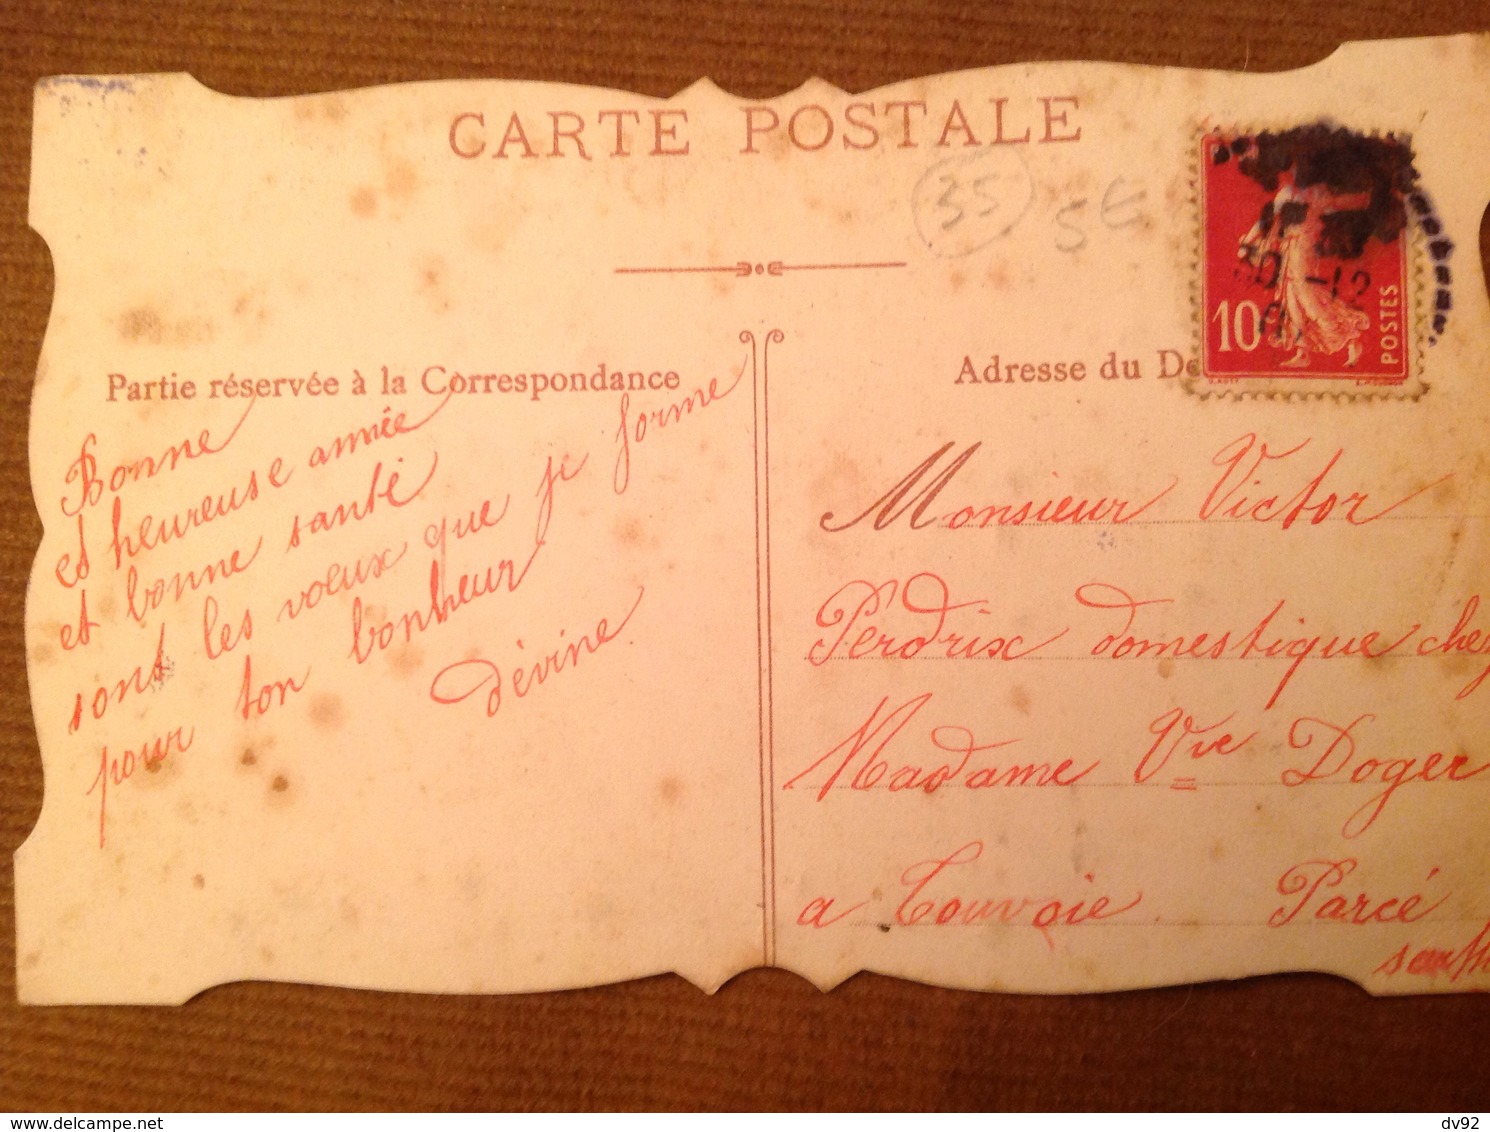 CARTE POSTALE
35
5€
10
POSTES
30 -12
Partie réservée à la Correspondance
Bonne
et heureuse année
et bonne santé
sont les voeux que je forme
pour ton bonheur
dévine.
Adresse du De
Monsieur Victor
Perdrix domestique chez
Madame Vve Doger
a Parcé
dv92